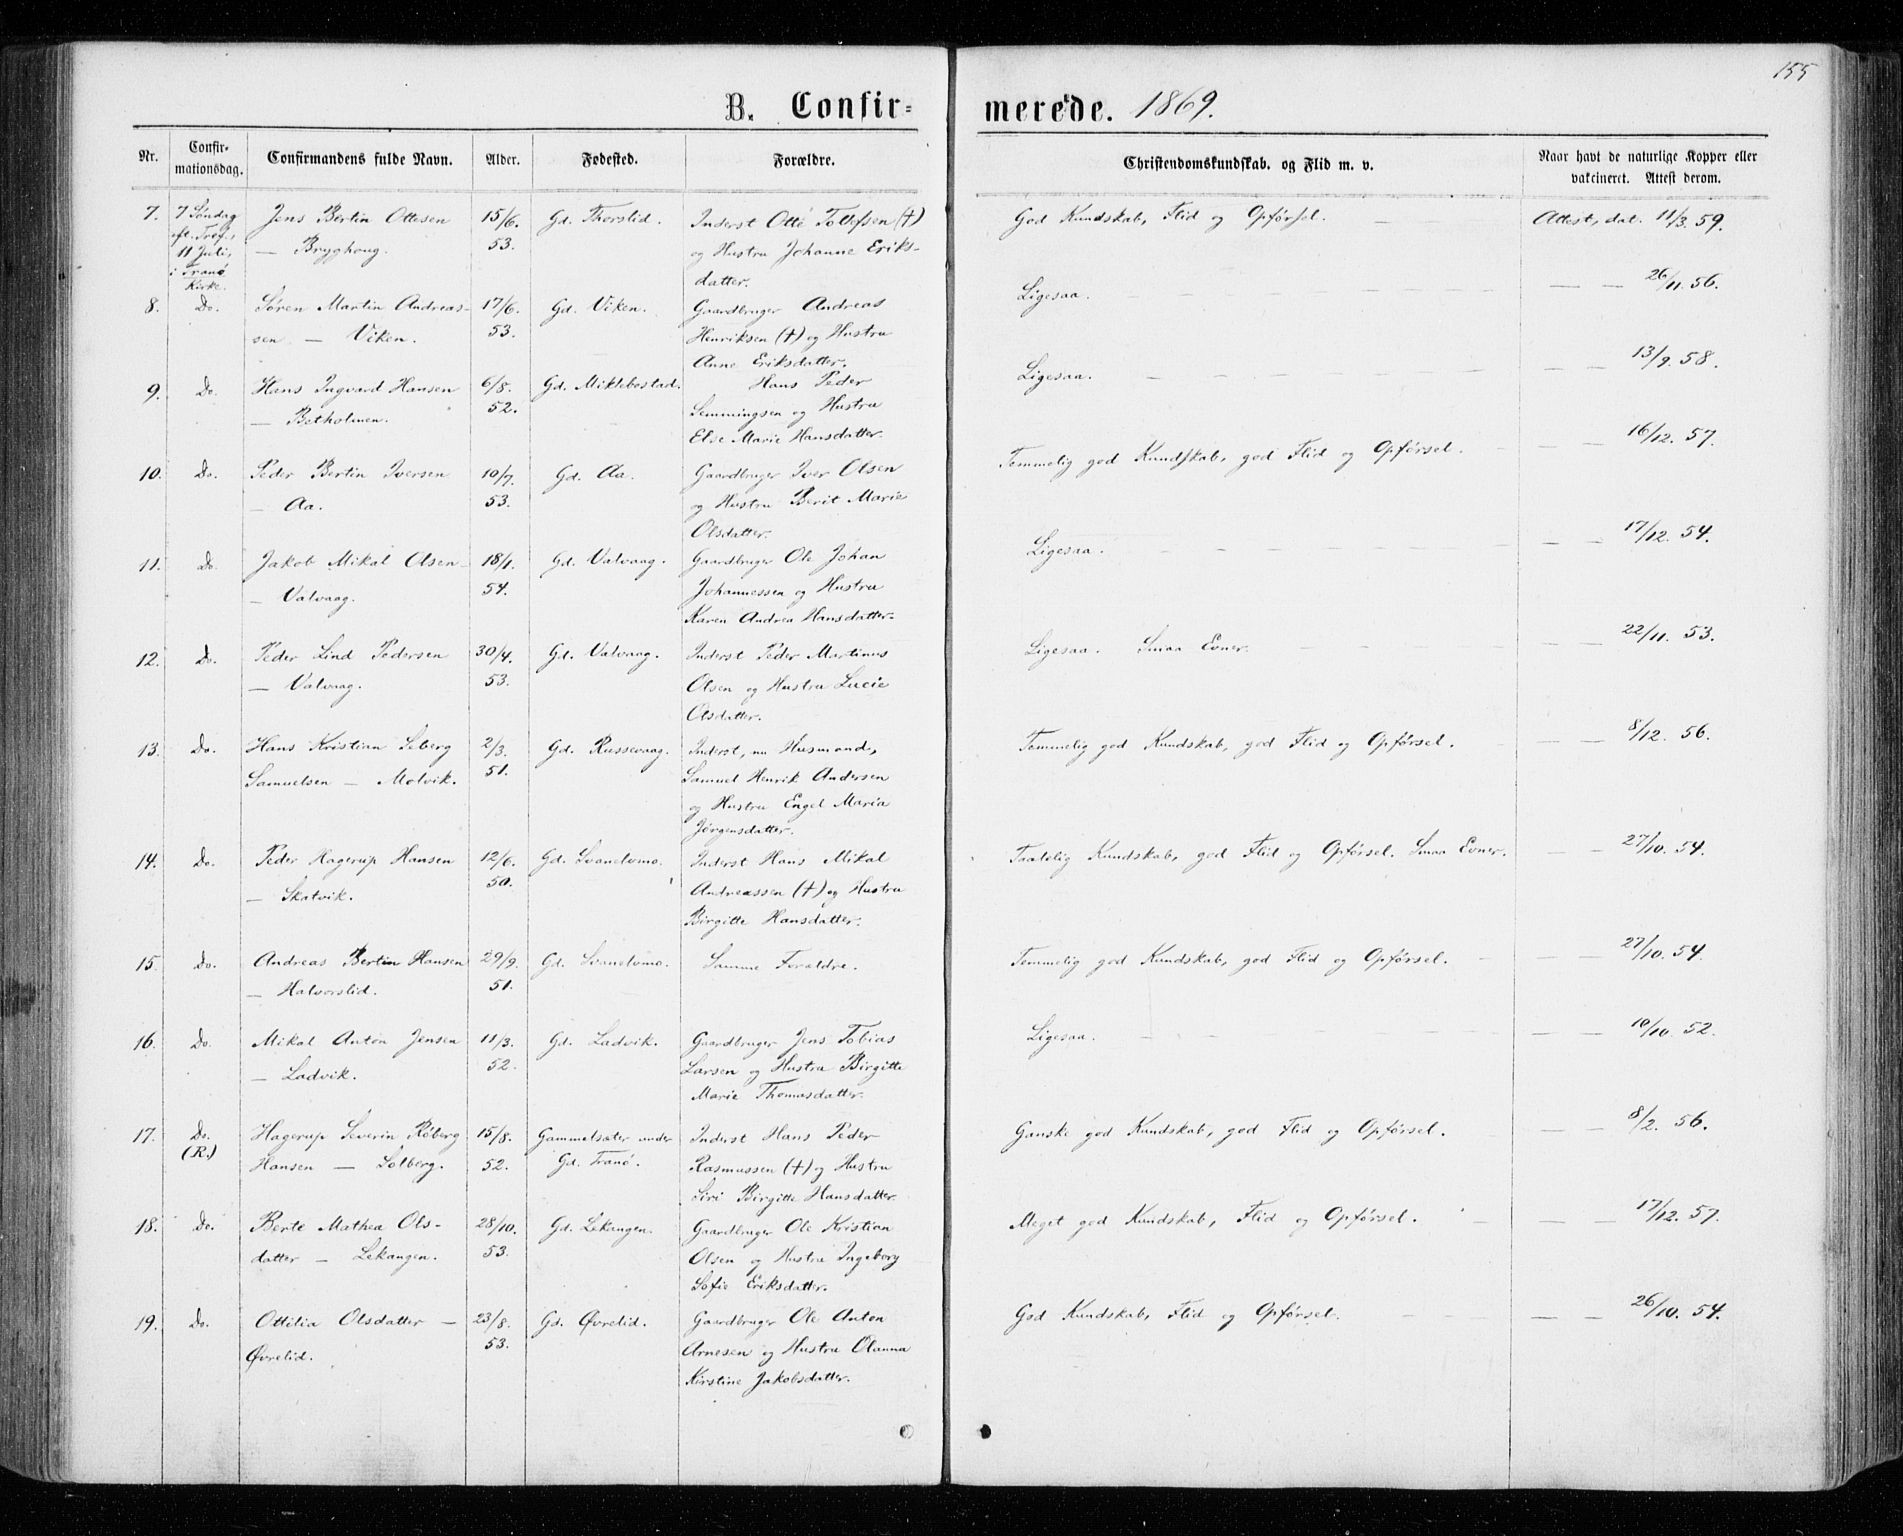 155
B. Confir=
merede. 1869.
Nr.
Confir-
mationsdag.
Confirmandens fulde Navn.
Alder.
Fødested.
Forældre.
Christendomskundskab. og Flid m. v.
Naar havt de naturlige Kopper eller
vakcineret. Attest derom.
7. 7 Søndag Jens Bertin Ottesen 15/6. Gd. Thorslid. Inderst Otte Tollefsen (†) God Kundskab, Flid og Opførsel. — Attest, dat. 11/3. 59.
eft. Tref., — Bryghoug. 53. og Hustru Johanne Eriks-
11 Juli, datter.
i Tranø
Kirke.
8. Do. Søren Martin Andreas- 17/6. Gd. Viken. Gaardbruger Andreas Ligesaa. — — 26/11. 56.
sen — Viken. 53. Henriksen (†) og Hustru
Anne Eriksdatter.
9. Do. Hans Ingvard Hansen 6/8. Gd. Miklebostad. Hans Peder Ligesaa. — — 13/9. 58.
— Betholmen. 52. Semmingsen og Hustru
Else Marie Hansdatter.
10. Do. Peder Bertin Iversen 10/7. Gd. Aa. Gaardbruger Iver Olsen Temmelig god Kundskab, god Flid og Opførsel. — — 16/12. 57.
— Aa. 53. og Hustru Berit Marie
Olsdatter.
11. Do. Jakob Mikal Olsen 18/1. Gd. Valvaag. Gaardbruger Ole Johan Ligesaa. — — 17/12. 54.
— Valvaag. 54. Johannessen og Hustru
Karen Andrea Hansdatter.
12. Do. Peder Lind Pedersen 30/4. Gd. Valvaag. Inderst Peder Martinus Ligesaa. Smaa Evner. — — 22/11. 53.
— Valvaag. 53. Olsen og Hustru Lucie
Olsdatter.
13. Do. Hans Kristian Seberg 2/3. Gd. Russevaag. Inderst, nu Husmand, Temmelig god Kundskab, god Flid og Opførsel. — — 8/12. 56.
Samuelsen — Molvik. 51. Samuel Henrik Andersen
og Hustru Engel Maria
Jørgensdatter.
14. Do. Peder Hagerup Hansen 12/6. Gd. Svanelvmo. Inderst Hans Mikal Taalelig Kundskab, god Flid og Opførsel. Smaa Evner. — — 27/10. 54.
— Skatvik. 50. Andreassen (†) og Hustru
Birgitte Hansdatter.
15. Do. Andreas Bertin Hansen 29/9. Gd. Svanelvmo. Samme Forældre. Temmelig god Kundskab, god Flid og Opførsel. — — 27/10. 54.
— Halvorslid. 51.
16. Do. Mikal Anton Jensen 11/3. Gd. Ladvik. Gaardbruger Jens Tobias Ligesaa. — — 10/10. 52.
— Ladvik. 52. Larsen og Hustru Birgitte
Marie Thomasdatter.
17. Do. Hagerup Severin Røberg 15/8. Gammelsæter under Inderst Hans Peder Ganske god Kundskab, god Flid og Opførsel. — — 8/2. 56.
(R.) Hansen — Solberg. 52. Gd. Tranø. Rasmussen (†) og Hustru
Siri Birgitte Hansdatter.
18. Do. Berte Mathea Ols- 28/10. Gd. Lekangen. Gaardbruger Ole Kristian Meget god Kundskab, Flid og Opførsel. — — 17/12. 57.
datter — Lekangen. 53. Olsen og Hustru Ingeborg
Sofie Eriksdatter.
19. Do. Ottilia Olsdatter — 23/8. Gd. Øvrelid. Gaardbruger Ole Anton God Kundskab, Flid og Opførsel. — — 26/10. 54.
Øvrelid. 53. Arnesen og Hustru Olanna
Kirstine Jakobsdatter.